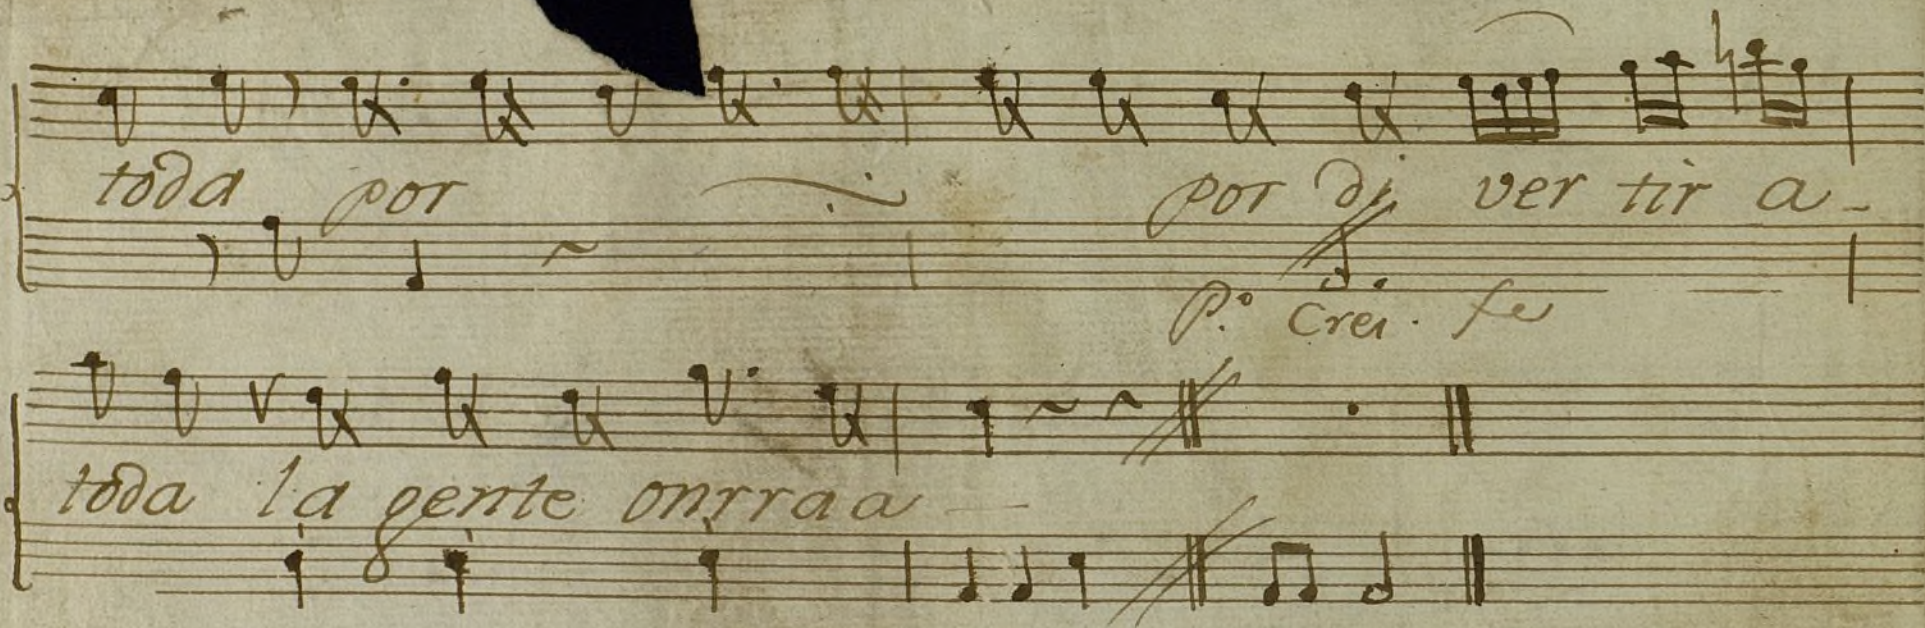 toda por por di ver tir a-
P.º Crei. fe
toda la gente onrraa